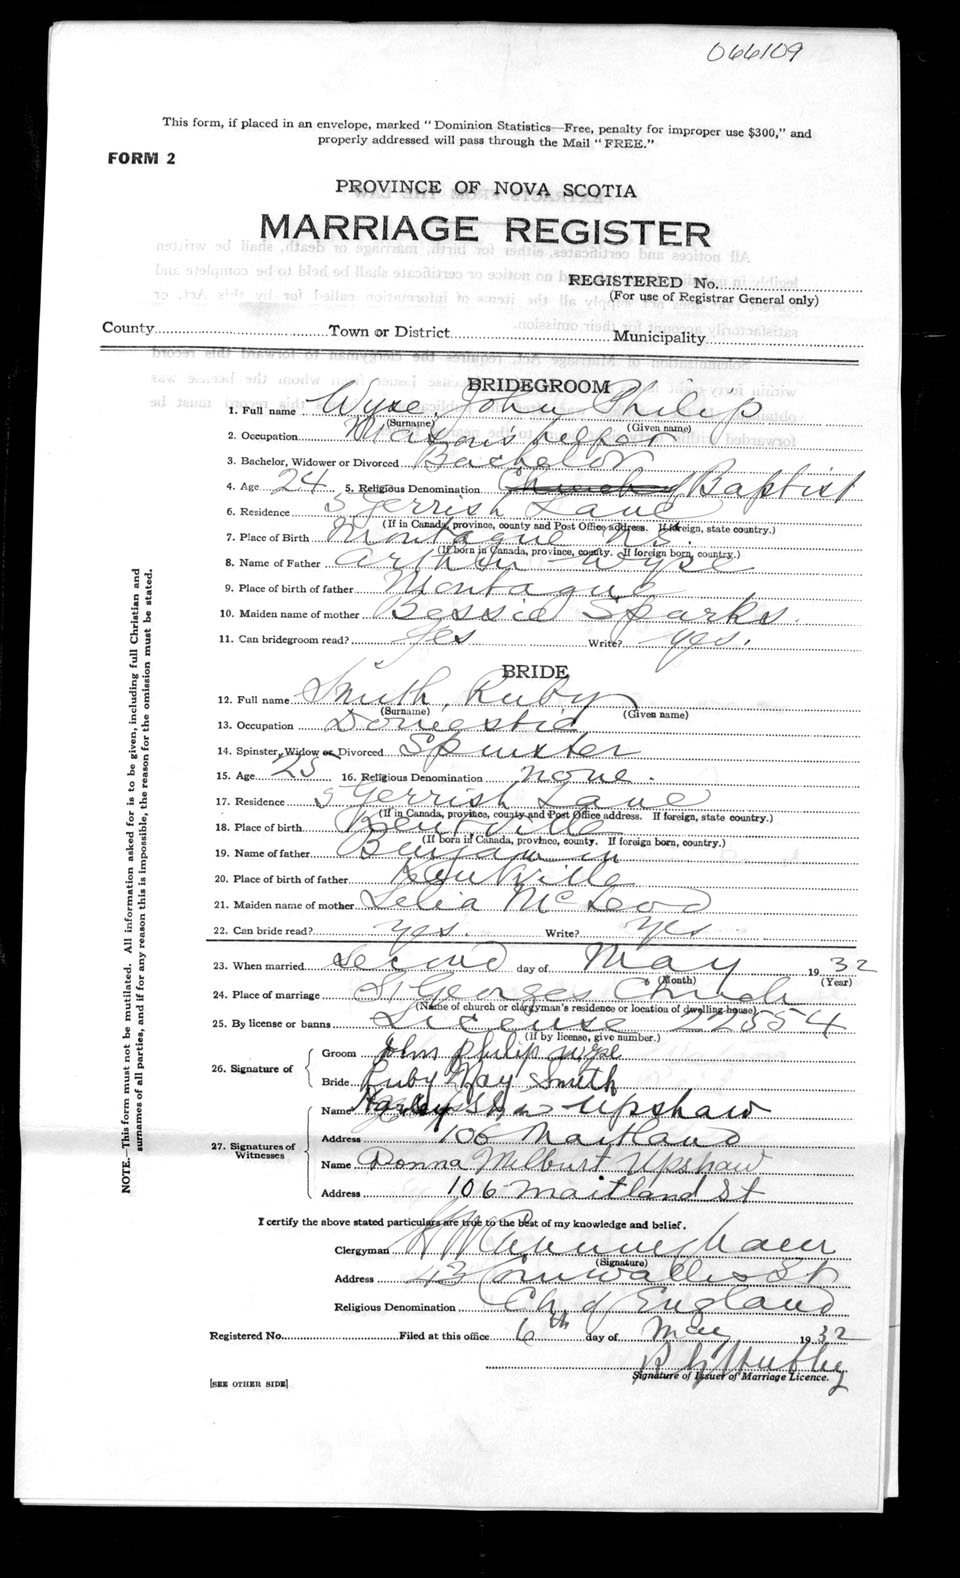 066109
This form, if placed in an envelope, marked "Dominion Statistics—Free, penalty for improper use $300," and
properly addressed will pass through the Mail "FREE."
FORM 2
PROVINCE OF NOVA SCOTIA
MARRIAGE REGISTER
REGISTERED No.
(For use of Registrar General only)
County Town or District Municipality
BRIDEGROOM
1. Full name Wyse, John Philip
(Surname) (Given name)
2. Occupation Masons helper
3. Bachelor, Widower or Divorced Bachelor
4. Age 24 5. Religious Denomination Baptist
6. Residence 5 Gerrish Lane
(If in Canada, province, county and Post Office address. If foreign, state country.)
7. Place of Birth Montague N.S.
(If born in Canada, province, county. If foreign born, country.)
8. Name of Father Arthur Wyse
9. Place of birth of father Montague
10. Maiden name of mother Bessie Sparks.
11. Can bridegroom read? Yes Write? yes.
BRIDE
12. Full name Smith, Ruby
(Surname) (Given name)
13. Occupation Domestic
14. Spinster, Widow or Divorced Spinster
15. Age 25 16. Religious Denomination none.
17. Residence 5 Gerrish Lane
(If in Canada, province, county and Post Office address. If foreign, state country.)
18. Place of birth Kentville
(If born in Canada, province, county. If foreign born, country.)
19. Name of father Benjamin
20. Place of birth of father Kentville
21. Maiden name of mother Lelia McLeod
22. Can bride read? yes. Write? Yes
23. When married second day of May 1932
(Month) (Year)
24. Place of marriage St Georges Church
(Name of church or clergyman's residence or location of dwelling house)
25. By license or banns License 22554
(If by license, give number.)
26. Signature of
Groom John Philip Wyse
Bride Ruby May Smith
27. Signatures of Witnesses
Name Upshaw
Address 106 Maitland
Name Donna Milburt Upshaw
Address 106 Maitland St
I certify the above stated particulars are true to the best of my knowledge and belief.
Clergyman Cunningham
(Signature)
Address Cornwallis St
Religious Denomination Ch. of England
Registered No. Filed at this office 6th day of May 1932
Signature of Issuer of Marriage Licence.
[SEE OTHER SIDE]
NOTE.—This form must not be mutilated. All information asked for is to be given, including full Christian and
surnames of all parties, and if for any reason this is impossible, the reason for the omission must be stated.